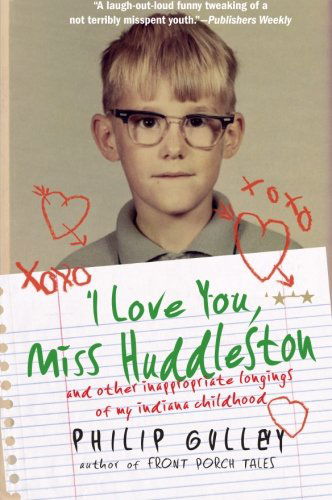 "A laugh-out-loud funny tweaking of a
not terribly misspent youth."—Publishers Weekly
xoxo
xoxo
I Love You,
Miss Huddleston
and other inappropriate longings
of my indiana childhood
PHILIP GULLEY
author of FRONT PORCH TALES